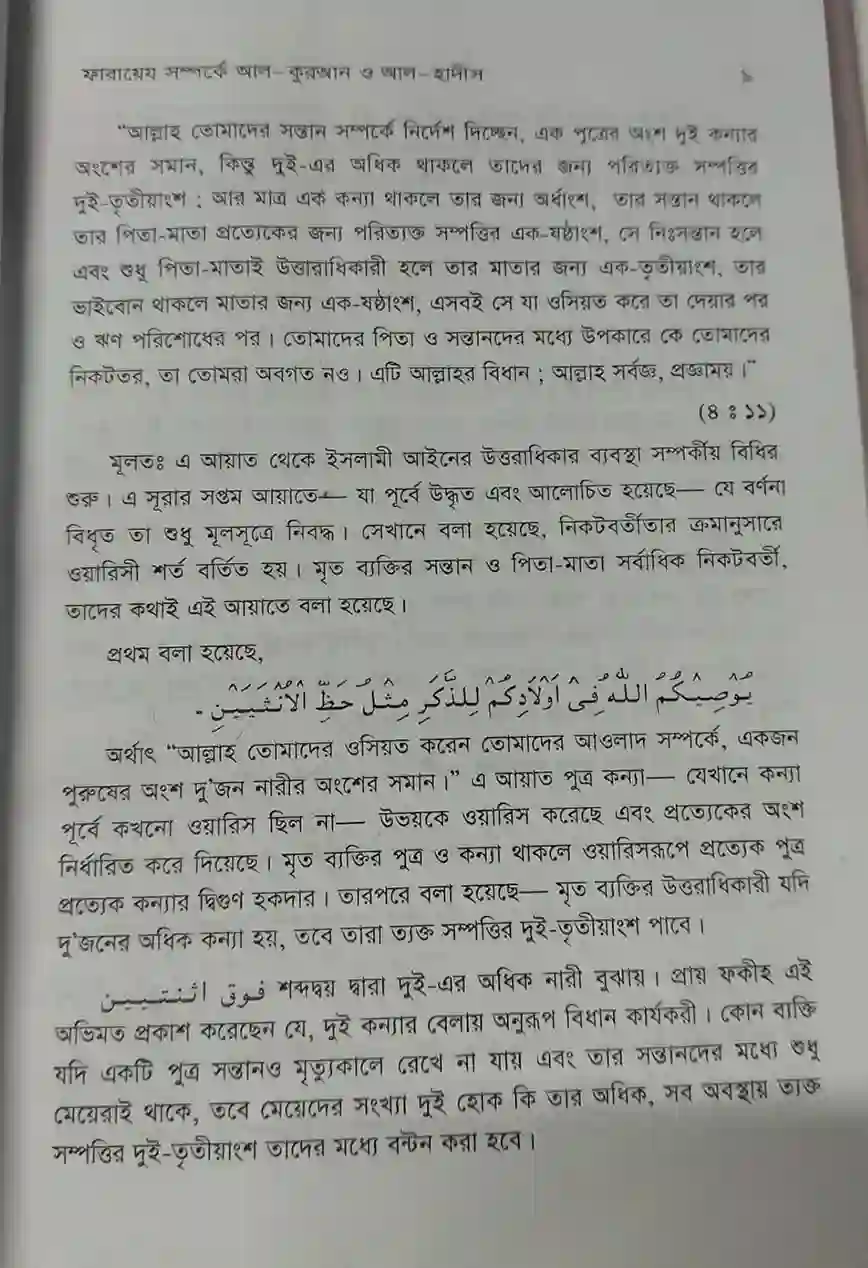 ফারায়েয সম্পর্কে আল-কুরআন ও আল-হাদীস ৯
“আল্লাহ তোমাদের সন্তান সম্পর্কে নির্দেশ দিচ্ছেন, এক পুত্রের অংশ দুই কন্যার
অংশের সমান, কিন্তু দুই-এর অধিক থাকলে তাদের জন্য পরিত্যক্ত সম্পত্তির
দুই-তৃতীয়াংশ ; আর মাত্র এক কন্যা থাকলে তার জন্য অর্ধাংশ, তার সন্তান থাকলে
তার পিতা-মাতা প্রত্যেকের জন্য পরিত্যক্ত সম্পত্তির এক-ষষ্ঠাংশ, সে নিঃসন্তান হলে
এবং শুধু পিতা-মাতাই উত্তারাধিকারী হলে তার মাতার জন্য এক-তৃতীয়াংশ, তার
ভাইবোন থাকলে মাতার জন্য এক-ষষ্ঠাংশ, এসবই সে যা ওসিয়ত করে তা দেয়ার পর
ও ঋণ পরিশোধের পর । তোমাদের পিতা ও সন্তানদের মধ্যে উপকারে কে তোমাদের
নিকটতর, তা তোমরা অবগত নও । এটি আল্লাহর বিধান ; আল্লাহ সর্বজ্ঞ, প্রজ্ঞাময় ।”
(৪ ঃ ১১)
মূলতঃ এ আয়াত থেকে ইসলামী আইনের উত্তরাধিকার ব্যবস্থা সম্পর্কীয় বিধির
শুরু । এ সূরার সপ্তম আয়াতে— যা পূর্বে উদ্ধৃত এবং আলোচিত হয়েছে— যে বর্ণনা
বিধৃত তা শুধু মূলসূত্রে নিবদ্ধ । সেখানে বলা হয়েছে, নিকটবর্তীতার ক্রমানুসারে
ওয়ারিসী শর্ত বর্তিত হয় । মৃত ব্যক্তির সন্তান ও পিতা-মাতা সর্বাধিক নিকটবর্তী,
তাদের কথাই এই আয়াতে বলা হয়েছে ।
প্রথম বলা হয়েছে,
يُوْصِيْكُمُ اللّٰهُ فِىْ اَوْلَادِكُمْ لِلذَّكَرِ مِثْلُ حَظِّ الْاُنْثَيَيْنِ -
অর্থাৎ “আল্লাহ তোমাদের ওসিয়ত করেন তোমাদের আওলাদ সম্পর্কে, একজন
পুরুষের অংশ দু'জন নারীর অংশের সমান ।” এ আয়াত পুত্র কন্যা— যেখানে কন্যা
পূর্বে কখনো ওয়ারিস ছিল না— উভয়কে ওয়ারিস করেছে এবং প্রত্যেকের অংশ
নির্ধারিত করে দিয়েছে । মৃত ব্যক্তির পুত্র ও কন্যা থাকলে ওয়ারিসরূপে প্রত্যেক পুত্র
প্রত্যেক কন্যার দ্বিগুণ হকদার । তারপরে বলা হয়েছে— মৃত ব্যক্তির উত্তরাধিকারী যদি
দু'জনের অধিক কন্যা হয়, তবে তারা ত্যক্ত সম্পত্তির দুই-তৃতীয়াংশ পাবে ।
فوق اثنتيين শব্দদ্বয় দ্বারা দুই-এর অধিক নারী বুঝায় । প্রায় ফকীহ এই
অভিমত প্রকাশ করেছেন যে, দুই কন্যার বেলায় অনুরূপ বিধান কার্যকরী । কোন ব্যক্তি
যদি একটি পুত্র সন্তানও মৃত্যুকালে রেখে না যায় এবং তার সন্তানদের মধ্যে শুধু
মেয়েরাই থাকে, তবে মেয়েদের সংখ্যা দুই হোক কি তার অধিক, সব অবস্থায় ত্যক্ত
সম্পত্তির দুই-তৃতীয়াংশ তাদের মধ্যে বন্টন করা হবে ।